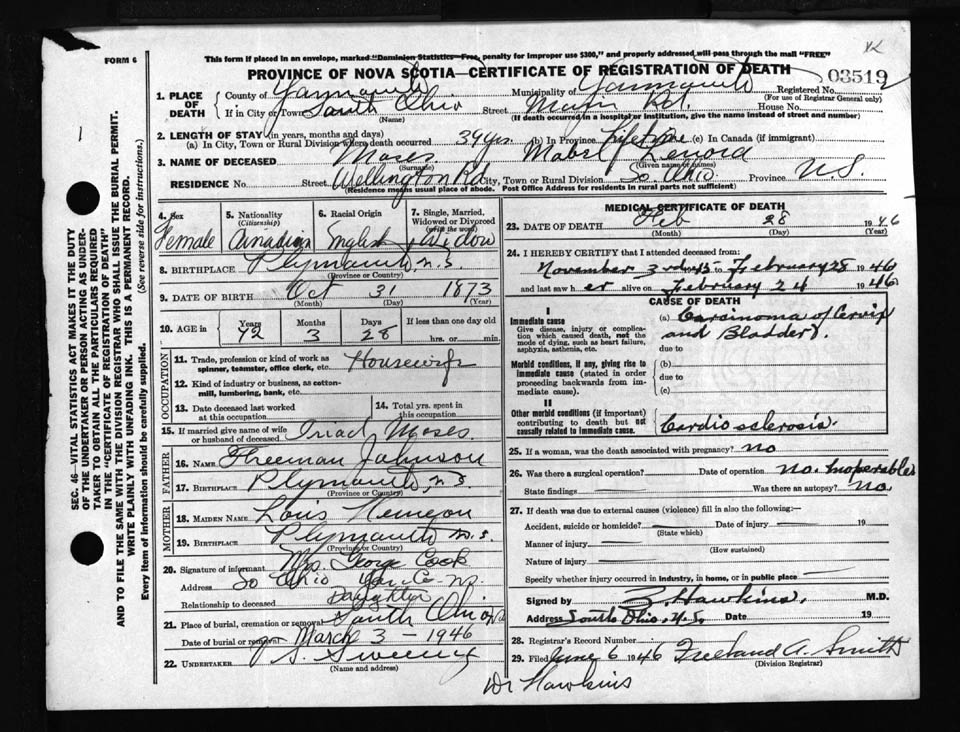 FORM 6
This form if placed in an envelope, marked "Dominion Statistics—Free, penalty for improper use $300," and properly addressed will pass through the mail "FREE"
PROVINCE OF NOVA SCOTIA—CERTIFICATE OF REGISTRATION OF DEATH
03519
1. PLACE OF DEATH County of Yarmouth Municipality of Yarmouth Registered No.
(For use of Registrar General only)
If in City or Town South Ohio Street Main Rd. House No.
(Name) (If death occurred in a hospital or institution, give the name instead of street and number)
2. LENGTH OF STAY (in years, months and days)
(a) In City, Town or Rural Division where death occurred 39 yrs (b) In Province Lifetime (c) In Canada (if immigrant)
3. NAME OF DECEASED Moses Mabel Lenora
(Surname) (Given name or names)
RESIDENCE No. Street Wellington Rd City, Town or Rural Division So. Ohio Province N.S.
(Residence means usual place of abode. Post Office Address for residents in rural parts not sufficient)
4. Sex Female
5. Nationality (Citizenship) Canadian
6. Racial Origin English
7. Single, Married, Widowed or Divorced (write the word) Widow
8. BIRTHPLACE Plymouth, N.S.
(Province or Country)
9. DATE OF BIRTH Oct 31 1873
(Month) (Day) (Year)
10. AGE in Years Months Days If less than one day old
72 3 28 hrs. or min.
OCCUPATION
11. Trade, profession or kind of work as spinner, teamster, office clerk, etc. Housewife
12. Kind of industry or business, as cotton-mill, lumbering, bank, etc.
13. Date deceased last worked at this occupation
14. Total yrs. spent in this occupation
15. If married give name of wife or husband of deceased Moses
FATHER
16. NAME Freeman Johnson
17. BIRTHPLACE Plymouth, N.S.
(Province or Country)
MOTHER
18. MAIDEN NAME Lois
19. BIRTHPLACE Plymouth N.S.
(Province or Country)
20. Signature of informant Mrs. George Cook
Address So Ohio Yar. Co. N.S.
Relationship to deceased Daughter
21. Place of burial, cremation or removal South Ohio
Date of burial or removal March 3 - 1946
22. UNDERTAKER Sweeny
(Name and address)
MEDICAL CERTIFICATE OF DEATH
23. DATE OF DEATH Feb 28 1946
(Month) (Day) (Year)
24. I HEREBY CERTIFY that I attended deceased from:
November 3rd 1945 to February 28 1946
and last saw h er alive on February 24 1946
CAUSE OF DEATH
I
Immediate cause
Give disease, injury or complication which caused death, not the mode of dying, such as heart failure, asphyxia, asthenia, etc.
(a) Carcinoma of Cervix and Bladder
due to
Morbid conditions, if any, giving rise to immediate cause (stated in order proceeding backwards from immediate cause).
(b)
due to
(c)
II
Other morbid conditions (if important) contributing to death but not causally related to immediate cause.
Cardio sclerosis.
25. If a woman, was the death associated with pregnancy? no
26. Was there a surgical operation? Date of operation no. Inoperable
State findings Was there an autopsy? no
27. If death was due to external causes (violence) fill in also the following:—
Accident, suicide or homicide? Date of injury 19
(State which)
Manner of injury
(How sustained)
Nature of injury
Specify whether injury occurred in industry, in home, or in public place
Signed by Z. Hawkins, M.D.
Address South Ohio, N.S. Date 19
28. Registrar's Record Number
29. Filed June 6 1946 Freeland A. Smith
(Division Registrar)
Dr Hawkins
SEC. 46—VITAL STATISTICS ACT MAKES IT THE DUTY OF THE UNDERTAKER OR PERSON ACTING AS UNDERTAKER TO OBTAIN ALL THE PARTICULARS REQUIRED IN THE "CERTIFICATE OF REGISTRATION OF DEATH" AND TO FILE THE SAME WITH THE DIVISION REGISTRAR WHO SHALL ISSUE THE BURIAL PERMIT.
WRITE PLAINLY WITH UNFADING INK. THIS IS A PERMANENT RECORD.
Every item of information should be carefully supplied. (See reverse side for instructions.)